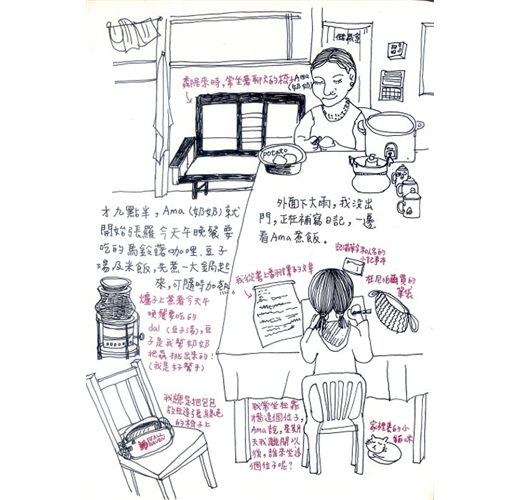 鄰居來時，常坐著聊天的椅子
Ama
(奶奶)
POTATO
才九點半，Ama (奶奶) 就
開始張羅今天午晚餐要
吃的馬鈴薯咖哩、豆子
湯及米飯，先煮一大鍋起
來，可隨時加熱。
外面下大雨，我沒出
門，正在補寫日記，一邊
看Ama煮飯。
在尼泊爾買的
筆袋
爐子上煮著今天午
晚餐要吃的
dal (豆子湯)，豆
子是我幫奶奶
把蟲挑出來的！
(我是好幫手)
我總是把包包
放在這張綠色
的椅子上
我常坐在靠
牆這個位子，
Ama說，星期
天我離開以
後，誰來坐這
個位子呢？
家裡養的小
貓咪